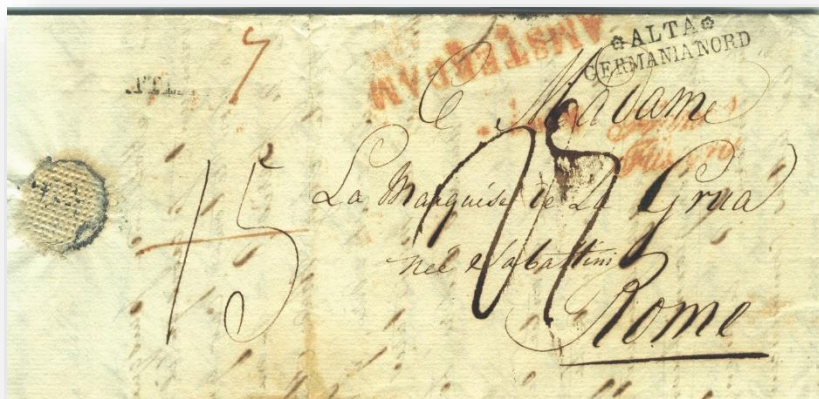 7
AMSTERDAM
ALTA
GERMANIA NORD
A Madame
15
La Marquise de La Grua
née Sabattini
Rome